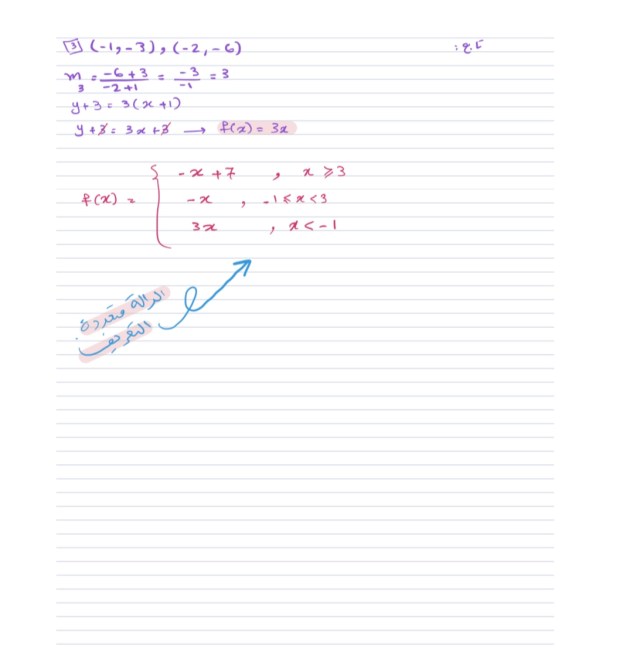 [3] (-1,-3), (-2,-6) ج.2:
m₃ = (-6+3)/(-2+1) = (-3)/(-1) = 3
y+3 = 3(x+1)
y+3 = 3x+3 → f(x) = 3x
f(x) = { -x+7 , x ⩾ 3
-x , -1 ⩽ x < 3
3x , x < -1
الدالة متعددة
التعريف